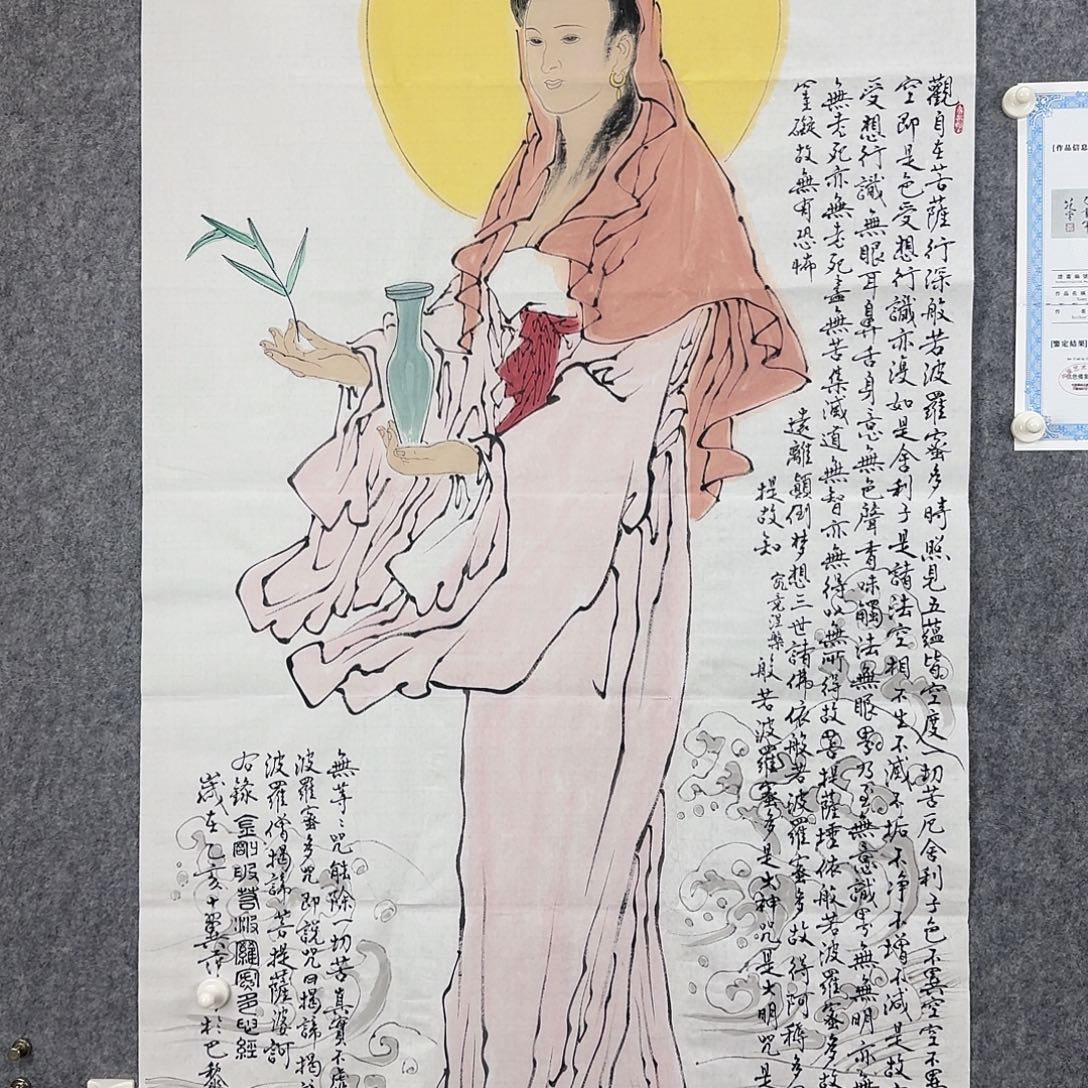 觀自在菩薩行深般若波羅蜜多時照見五蘊皆空度一切苦厄舍利子色不異空空不異
空即是色受想行識亦復如是舍利子是諸法空相不生不滅不垢不净不增不減是故
受想行識無眼耳鼻舌身意無色聲香味觸法無眼界乃至無意識界無無明亦無
無老死亦無老死盡無苦集滅道無智亦無得以無所得故菩提薩埵依般若波羅蜜多故
罣礙故無有恐怖
遠離顛倒梦想三世諸佛依般若波羅蜜多故得阿耨多
提故知
究竟涅槃
般若波羅蜜多是大神咒是大明咒是
無等〻咒能除一切苦真實不虛
波羅蜜多咒即説咒曰揭諦揭
波羅僧揭諦菩提薩婆訶
右錄金剛般若波羅蜜多心經
歲在乙亥十翼范於巴黎
[作品信息
[鉴定结果]